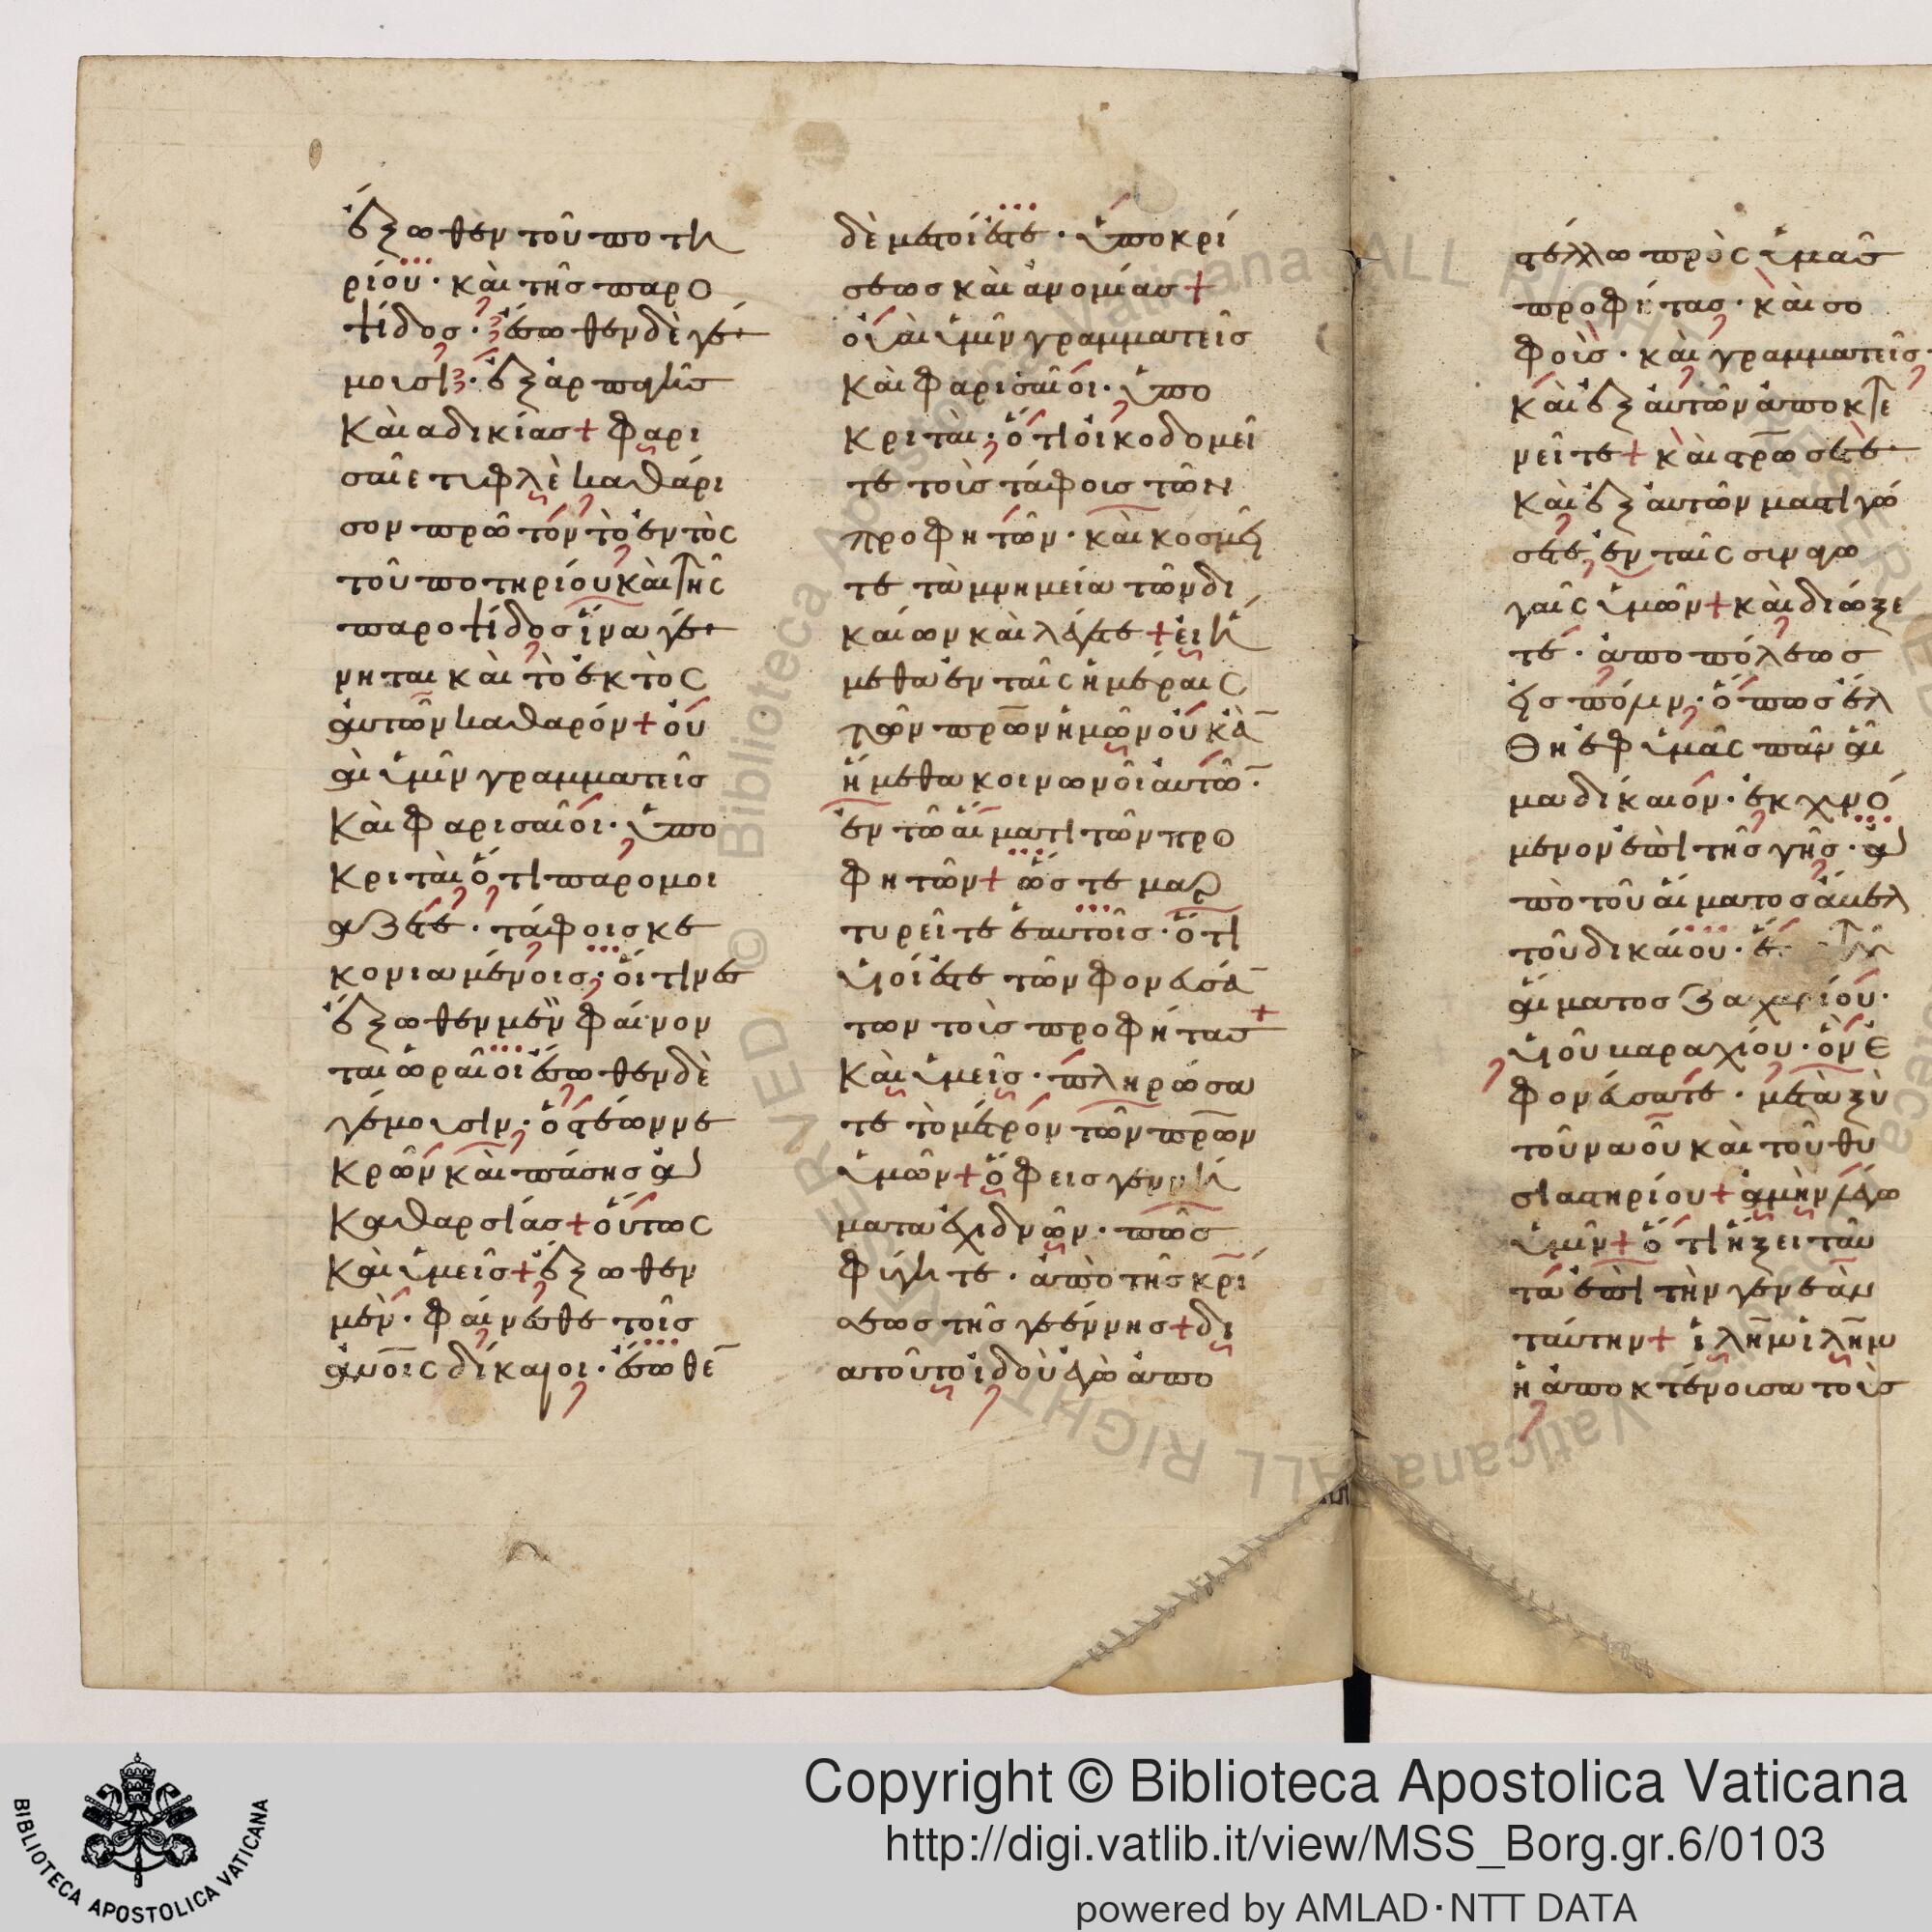 ἔξωθεν τοῦ ποτη
ρίου· καὶ τῆς παρο
ψίδος· ἔσωθεν δὲ γέ
μουσι· ἐξ ἁρπαγῆς
Καὶ αδικίας + Φαρι
σαῖε τυφλὲ καθάρι
σον πρῶτον τὸ ἐντὸς
τοῦ ποτηρίου καὶ τῆς
παροψίδος ἵνα γέ
νηται καὶ τὸ ἐκτὸς
ἀυτῶν καθαρόν + ὀυ
ὰι ὑμῖν γραμματεῖς
Καὶ Φαρισαῖοι· ὑπο
κριταὶ ὅτι παρομοι
άζετε· τάφοις κε
κονιαμένοις· ὅιτινες
ἔξωθεν μὲν φαίνον
ται ὡραῖοι ἔσωθεν δὲ
γέμουσιν· ὀστέων νε
κρῶν καὶ πάσης ἀ
Καθαρσίας + ὅυτως
Καὶ ὑμεῖς + ἔξωθεν
μὲν· φαίνεσθε τοῖς
ἀνοις δίκαιοι· ἔσωθε
δὲ μεστοί ἐστε· ὑποκρί
σεως καὶ ἀνομίας +
ὀυὰι ὑμῖν γραμματεῖς
Καὶ Φαρισαῖοι· ὑπο
κριταὶ· ὅτι ὀικοδομεῖ
τε τοὺς τάφους τῶν
προφητῶν· καὶ κοσμεῖ
τε τὰ μνημεία τῶν δι
καίων καὶ λέγετε + ἐι ἤ
μεθα ἐν ταῖς ἡμέραις
τῶν πρων ἡμῶν ὀυκ ἂ
ἤμεθα κοινωνοὶ ἀυτῶ·
ἐν τῶ ἅιματι τῶν προ
φητῶν + ὥστε μαρ
τυρεῖτε ἑαυτοῖς· ὅτι
ὑιοί ἐστε τῶν φονευσά
των τοὺς προφήτας +
Καὶ ὑμεῖς· πληρώσα
τε τὸ μέτρον τῶν πρων
ὑμῶν + ὄφεις γεννή
ματα ἐχιδνῶν· πῶς
φύγητε· ἀπὸ τῆς κρί
σεως τῆς γεέννης + δι
α τοῦτο ἰδοὺ ἐγὼ ἀπο
στέλλω πρὸς ὑμᾶς
προφήτας· καὶ σο
φοὺς· καὶ γραμματεῖς·
Καὶ ἐξ ἀυτῶν ἀποκτε
νεῖτε + καὶ στρώσετε
Καὶ ἐξ ἀυτῶν μαστιγώ
σετε ἐν ταῖς συναγω
γαῖς ὑμῶν + καὶ διώξε
τε· ἀπο πόλεως
ἐις πόλιν· ὅπως ἔλ
θη ἐφ ὑμᾶς πᾶν ἅι
μα δίκαιον· ἐκχυνό
μενον ἐπὶ τῆς γῆς· ἀ
πὸ τοῦ ἅιματος ἄβελ
τοῦ δικαίου·
ἅιματος Ζαχαρίου·
ὑιοῦ βαραχίου· ὃν ἐ
φονεύσατε· μεταξὺ
τοῦ ναοῦ καὶ τοῦ θυ
σιαστηρίου + ἀμὴν λέγω
ὑμῖν + ὅτι ἥξει ταῦ
τα ἐπὶ τὴν γενεὰν
ταύτην + ἰλημ ἰλημ
ἡ ἀποκτένουσα τοὺς
Copyright © Biblioteca Apostolica Vaticana
http://digi.vatlib.it/view/MSS_Borg.gr.6/0103
powered by AMLAD·NTT DATA
BIBLIOTECA APOSTOLICA VATICANA